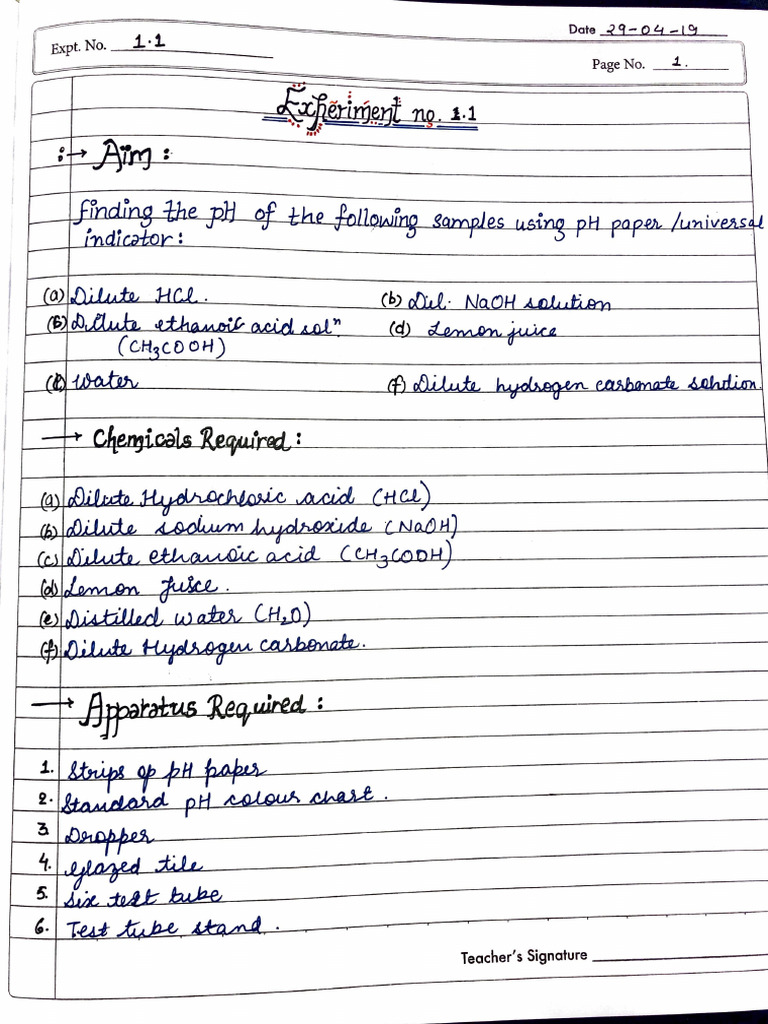 Date 29-04-19
Expt. No. 1.1
Page No. 1.
Experiment no. 1.1
:→ Aim :
finding the pH of the following samples using pH paper /universal
indicator :
(a) Dilute HCl. (b) Dil. NaOH solution
(B) Dilute ethanoic acid solⁿ. (d) Lemon juice
(CH₃COOH)
(E) Water (f) Dilute hydrogen carbonate solution.
→ Chemicals Required :
(a) Dilute Hydrochloric acid (HCl)
(b) Dilute sodium hydroxide (NaOH)
(c) Dilute ethanoic acid (CH₃COOH)
(d) Lemon juice.
(e) Distilled water (H₂O)
(f) Dilute Hydrogen carbonate.
→ Apparatus Required :
1. Strips of pH paper
2. Standard pH colour chart.
3. Dropper
4. Glazed tile
5. Six test tube
6. Test tube stand.
Teacher's Signature